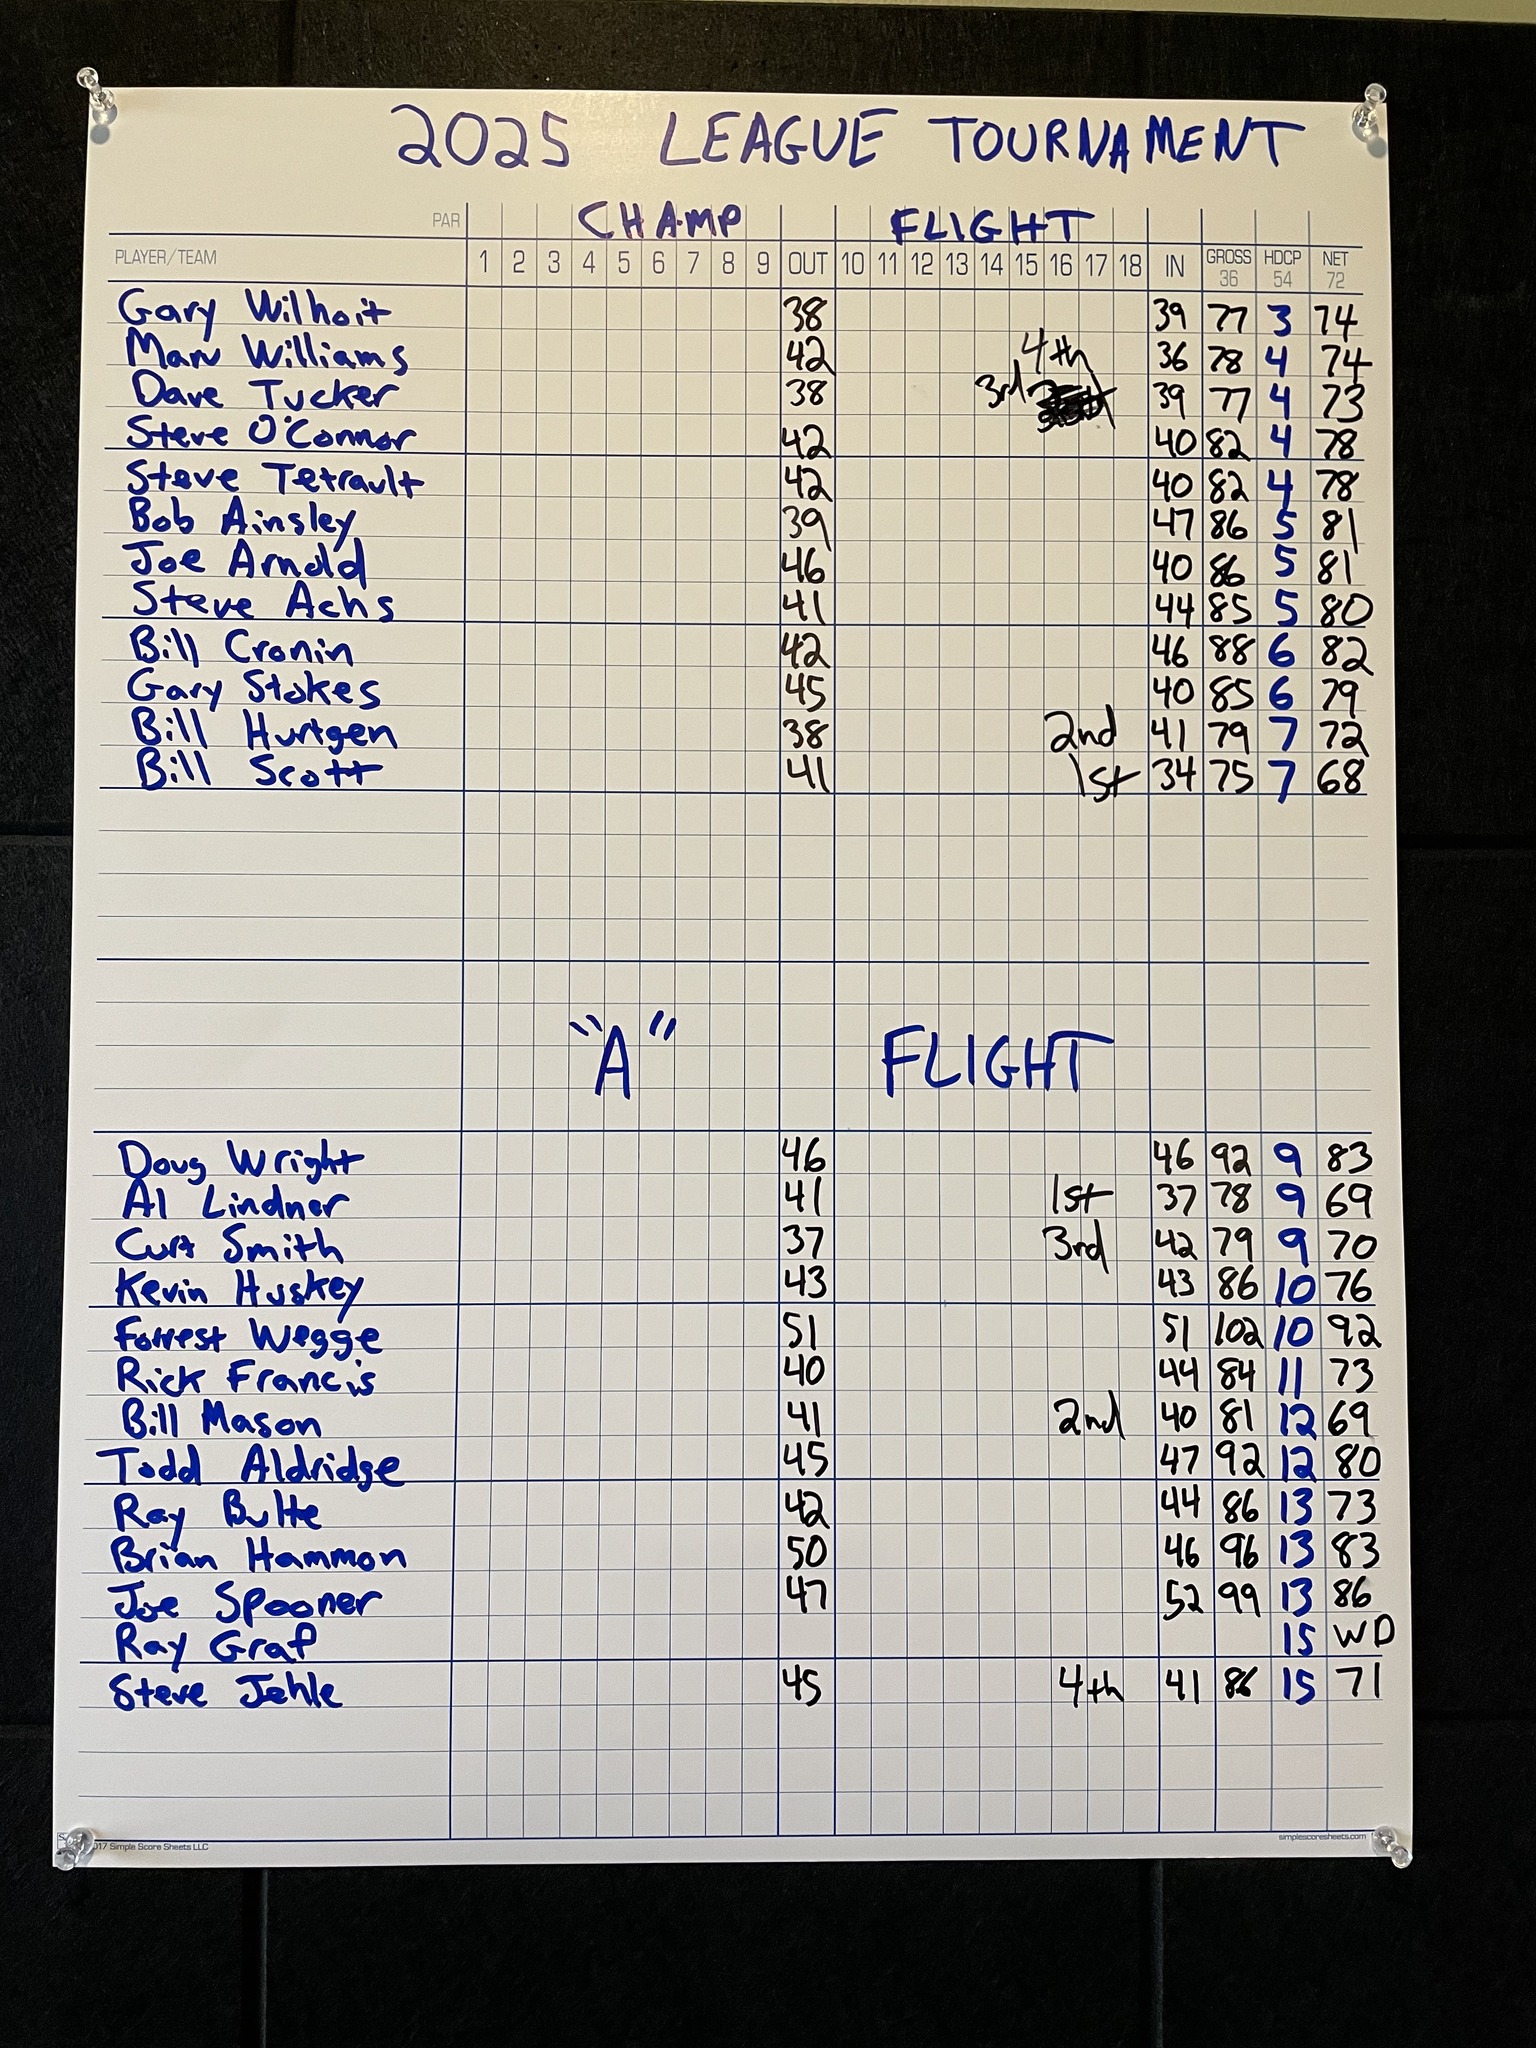 2025 LEAGUE TOURNAMENT
PAR CHAMP FLIGHT
PLAYER/TEAM 1 2 3 4 5 6 7 8 9 OUT 10 11 12 13 14 15 16 17 18 IN GROSS 36 HDCP 54 NET 72
Gary Wilhoit 38 39 77 3 74
Marv Williams 42 4th 36 78 4 74
Dave Tucker 38 3rd 39 77 4 73
Steve O'Connor 42 40 82 4 78
Steve Tetrault 42 40 82 4 78
Bob Ainsley 39 47 86 5 81
Joe Arnold 46 40 86 5 81
Steve Achs 41 44 85 5 80
Bill Cronin 42 46 88 6 82
Gary Stokes 45 40 85 6 79
Bill Hurtgen 38 2nd 41 79 7 72
Bill Scott 41 1st 34 75 7 68
"A" FLIGHT
Doug Wright 46 46 92 9 83
Al Lindner 41 1st 37 78 9 69
Curt Smith 37 3rd 42 79 9 70
Kevin Huskey 43 43 86 10 76
Forrest Wegge 51 51 102 10 92
Rick Francis 40 44 84 11 73
Bill Mason 41 2nd 40 81 12 69
Todd Aldridge 45 47 92 12 80
Ray Bulte 42 44 86 13 73
Brian Hammon 50 46 96 13 83
Joe Spooner 47 52 99 13 86
Ray Graf 15 WD
Steve Jehle 45 4th 41 86 15 71
17 Simple Score Sheets LLC simplescoresheets.com